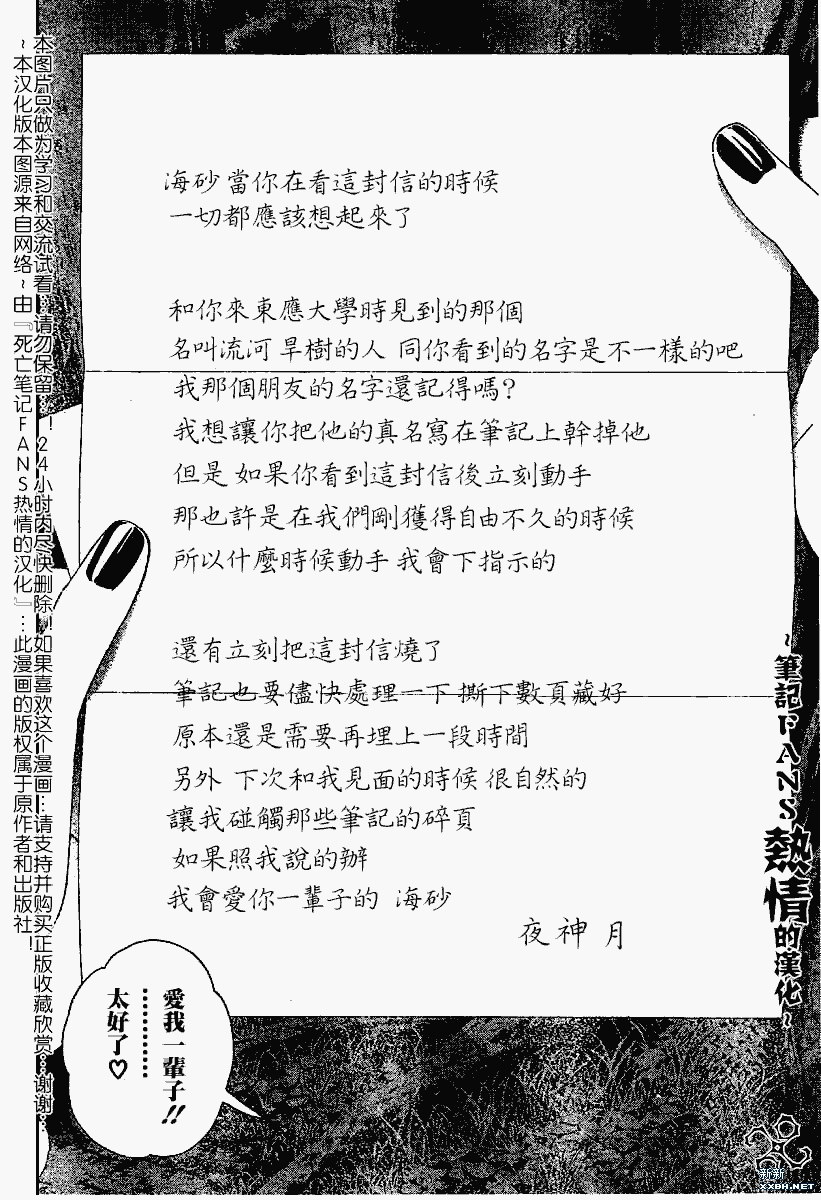 海砂 當你在看這封信的時候
一切都應該想起來了
和你來東應大學時見到的那個
名叫流河 旱樹的人 同你看到的名字是不一樣的吧
我那個朋友的名字還記得嗎?
我想讓你把他的真名寫在筆記上幹掉他
但是 如果你看到這封信後立刻動手
那也許是在我們剛獲得自由不久的時候
所以什麼時候動手 我會下指示的
還有立刻把這封信燒了
筆記也要儘快處理一下 撕下數頁藏好
原本還是需要再埋上一段時間
另外 下次和我見面的時候 很自然的
讓我碰觸那些筆記的碎頁
如果照我說的辦
我會愛你一輩子的 海砂
夜神 月
愛我一輩子!!
………
太好了♡
本图片只做为学习和交流试看…请勿保留…!24小时内尽快删除!!如果喜欢这个漫画…请支持并购买正版收藏欣赏…谢谢…
~本汉化版本图源来自网络~由『死亡笔记FANS热情的汉化』…此漫画的版权属于原作者和出版社!
~筆記FANS熱情的漢化~
新新
XXBH.NET